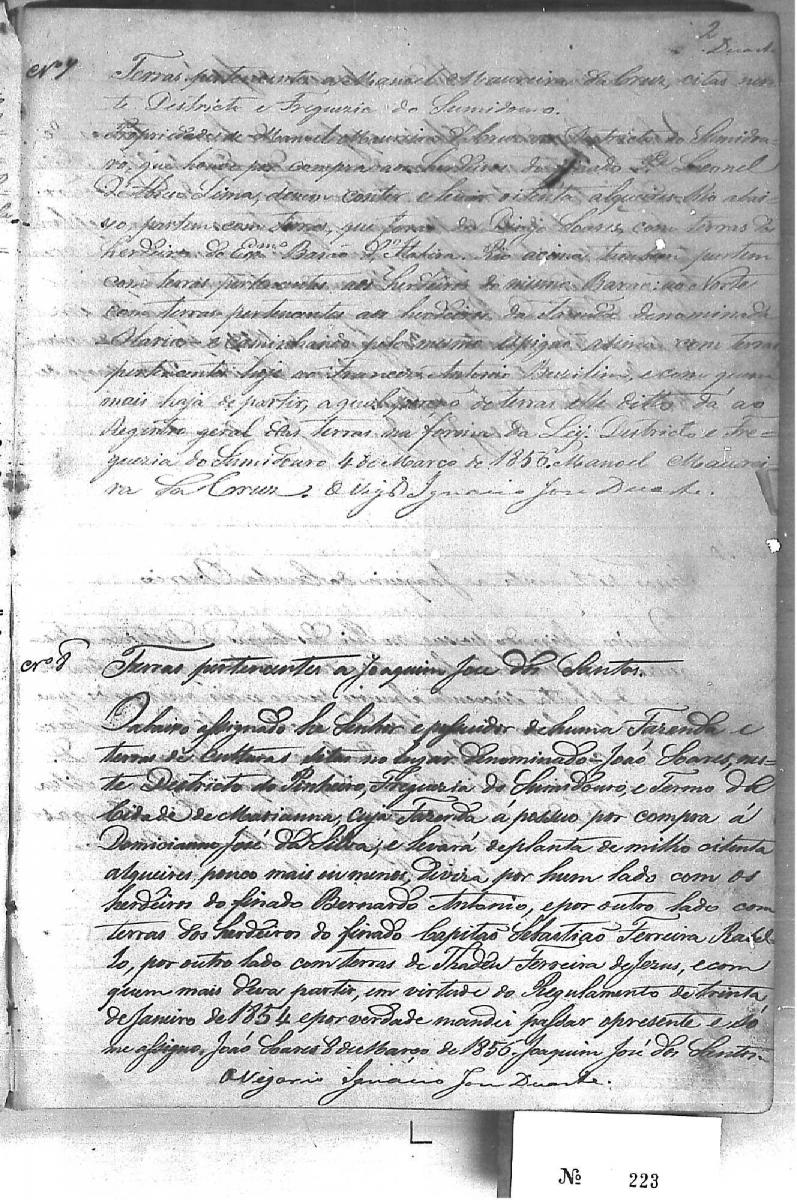 2
Duarte
Nº 7
Terras pertencentes a Manoel Maurreira da Cruz, citas nes-
te Districto e Freguezia do Sumidouro.
Propriedade de Manoel Maurreira da Cruz no Districto do Sumidou-
ro, que houve por compra aos herdeiros do finado Leonel
de Abreu Lima, devem conter e levar oitenta alqueires Rio abai-
xo, partem com terras, que foram do Diogo Soares, com terras dos
herdeiros do Exmo. Barão Rio acima, tambem partem
com terras pertencentes aos herdeiros do mesmo Barão; ao Norte
com terras pertencentes aos herdeiros da Fazenda denominada
e caminhando pelo mesmo espigão acima com terras
pertencentes hoje ao Francez Antonio e com quem
mais haja de partir, de terras elle ditto dá ao
Registro geral das terras na forma da Ley. Districto e Fre-
guezia do Sumidouro 4 de Março de 1856. Manoel Maurrei-
ra da Cruz. O Vigº Ignacio José Duarte.
Nº 8
Terras pertencentes a Joaquim José dos Santos.
O abaixo assignado he Senhor e possuidor de huma Fazenda e
terras de Culturas sitas no lugar denominado = João Soares, nes-
te Districto do Pinheiro, Freguezia do Sumidouro, e Termo da
Cidade de Marianna, cuja Fazenda á possuo por compra á
Domiciano José da Silva, e levará de planta de milho oitenta
alqueires pouco mais ou menos, diviza por hum lado com os
herdeiros do finado Bernardo Antonio, e por outro lado com
terras dos herdeiros do finado Capitão Sebastião Ferreira Rabel-
lo, por outro lado com terras de Thadeu Ferreira de Jezus, e com
quem mais deva partir, em virtude do Regulamento de trinta
de Janeiro de 1854 e por verdade mandei passar o presente e só
me assigno. João Soares 8 de Março de 1856. Joaquim José dos Santos.
O Vigario Ignácio José Duarte.
Nº 223